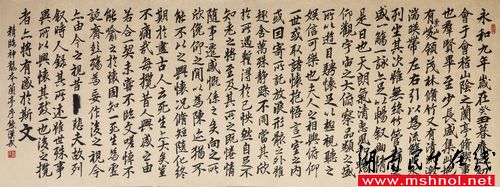 永和九年歲在癸丑暮春之初
會于會稽山陰之蘭亭脩禊事也
羣賢畢至少長咸集此地
有崇山峻領茂林脩竹又有清流激
湍暎帶左右引以為流觴曲水
列坐其次雖無絲竹管弦之
盛一觴一詠亦足以暢敘幽情
是日也天朗氣清惠風和暢
仰觀宇宙之大俯察品類之盛
所以遊目騁懷足以極視聽之
娛信可樂也夫人之相與俯仰
一世或取諸懷抱悟言一室之內
或因寄所託放浪形骸之外雖
趣舍萬殊靜躁不同當其欣
於所遇暫得於己怏然自足不
知老之將至及其所之既惓情
隨事遷感慨係之矣向之所
欣俛仰之間以為陳迹猶不
能不以之興懷況脩短隨化終
期於盡古人云死生亦大矣豈
不痛哉每攬昔人興感之由
若合一契未嘗不臨文嗟悼不
能喻之於懷固知一死生為虛
誕齊彭殤為妄作後之視今
亦由今之視昔悲夫故列
敘時人錄其所述雖世殊事
異所以興懷其致一也後之攬
者亦將有感於斯文
臨神龍本蘭亭序
湖南民生在线
www.mshnol.net